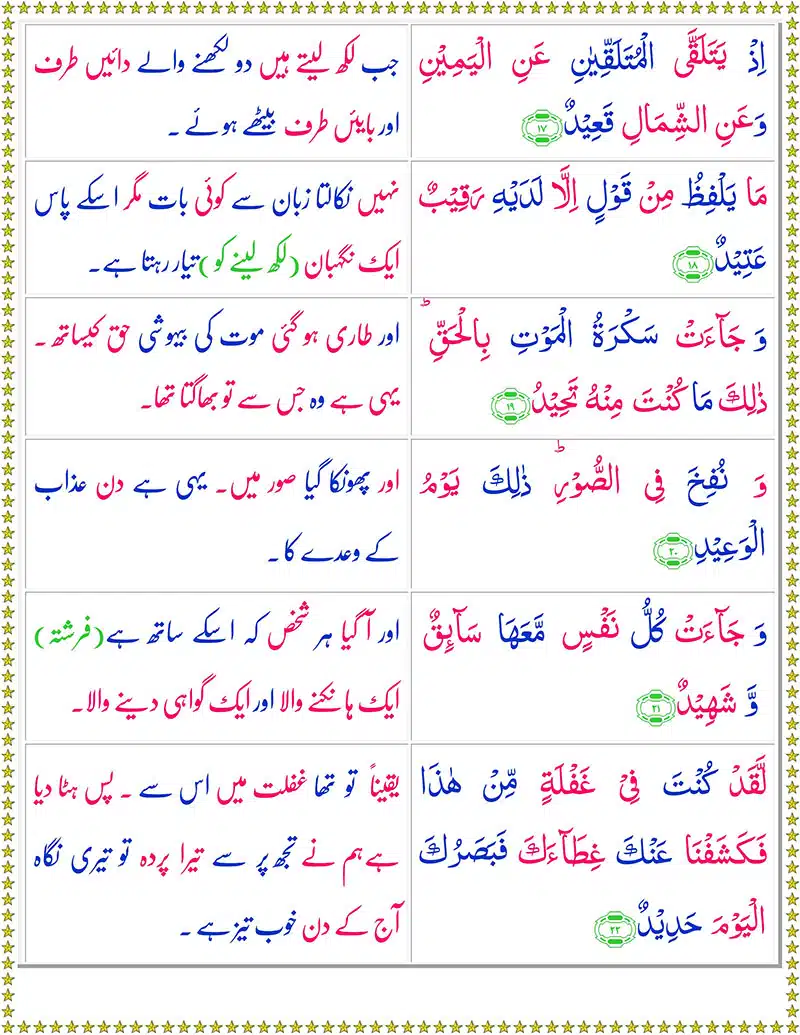 اِذْ يَتَلَقَّى الْمُتَلَقِّيٰنِ عَنِ الْيَمِيْنِ
وَعَنِ الشِّمَالِ قَعِيْدٌ ۝١٧
جب لکھ لیتے ہیں دو لکھنے والے دائیں طرف
اور بایئں طرف بیٹھے ہوئے ۔
مَا يَلْفِظُ مِنْ قَوْلٍ اِلَّا لَدَيْهِ رَقِيْبٌ
عَتِيْدٌ ۝١٨
نہیں نکالتا زبان سے کوئی بات مگر اسکے پاس
ایک نگہبان (لکھ لینے کو) تیار رہتا ہے۔
وَ جَآءَتْ سَكْرَةُ الْمَوْتِ بِالْحَقِّ ؕ
ذٰلِكَ مَا كُنْتَ مِنْهُ تَحِيْدُ ۝١٩
اور طاری ہو گئی موت کی بیہوشی حق کیساتھ ۔
یہی ہے وہ جس سے تو بھاگتا تھا۔
وَ نُفِخَ فِى الصُّوْرِ ؕ ذٰلِكَ يَوْمُ
الْوَعِيْدِ ۝٢٠
اور پھونکا گیا صور میں۔ یہی ہے دن عذاب
کے وعدے کا ۔
وَ جَآءَتْ كُلُّ نَفْسٍ مَّعَهَا سَآئِقٌ
وَّ شَهِيْدٌ ۝٢١
اور آ گیا ہر شخص کہ اسکے ساتھ ہے (فرشتہ)
ایک ہانکنے والا اور ایک گواہی دینے والا۔
لَقَدْ كُنْتَ فِىْ غَفْلَةٍ مِّنْ هٰذَا
فَكَشَفْنَا عَنْكَ غِطَآءَكَ فَبَصَرُكَ
الْيَوْمَ حَدِيْدٌ ۝٢٢
یقیناً تو تھا غفلت میں اس سے ۔ پس ہٹا دیا
ہے ہم نے تجھ پر سے تیرا پردہ تو تیری نگاہ
آج کے دن خوب تیز ہے ۔